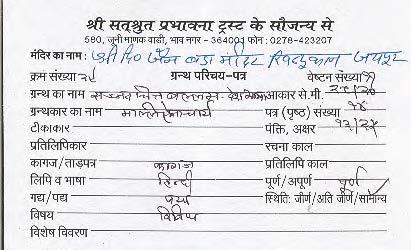 श्री सत्श्रुत प्रभावना ट्रस्ट के सौजन्य से
580, जूनी माणक वाडी, भाव नगर - 364001 फोन : 0278-423207
मंदिर का नाम : श्री दि० जैन बडा मंदिर जयपुर
क्रम संख्या ग्रन्थ परिचय-पत्र वेष्टन संख्या
ग्रन्थ का नाम सज्जनचित्त बल्लभ आकार से.मी.
ग्रन्थकार का नाम मल्लिषेणाचार्य पत्र (पृष्ठ) संख्या १४
टीकाकार पंक्ति, अक्षर
प्रतिलिपिकार रचना काल
कागज/ताड़पत्र कागज प्रतिलिपि काल
लिपि व भाषा हिन्दी पूर्ण/अपूर्ण पूर्ण
गद्य/पद्य पद्य स्थिति: जीर्ण/अति जीर्ण/सामान्य
विषय
विशेष विवरण